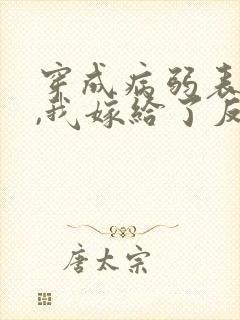 穿成病弱表
,我嫁给了反
唐太宗